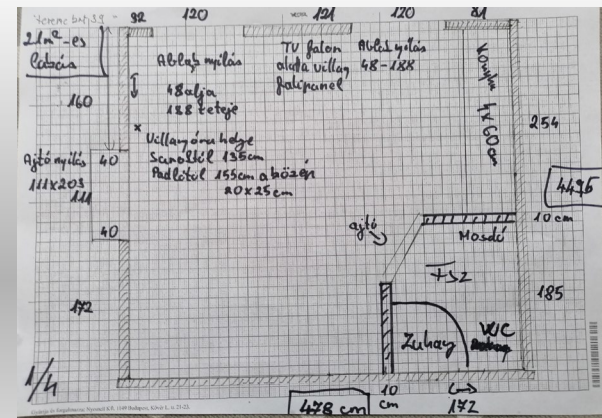 92 120 121 120 81
21m²-es
lakás
Ablak nyilás
48 alja
188 teteje
TV falon
alatta villany
falipanel
Ablak nyilás
48-188
Konyha 4x60cm
160
254
x
Villanyóra helye
Saroktól 135cm
Padlótól 155cm a közép
20x25cm
Ajtó nyilás
111x203
111
40
40
4495
10cm
ajtó
Mosdó
FSZ
172
185
Zuhany
WC
1/4
478 cm
10
cm
172